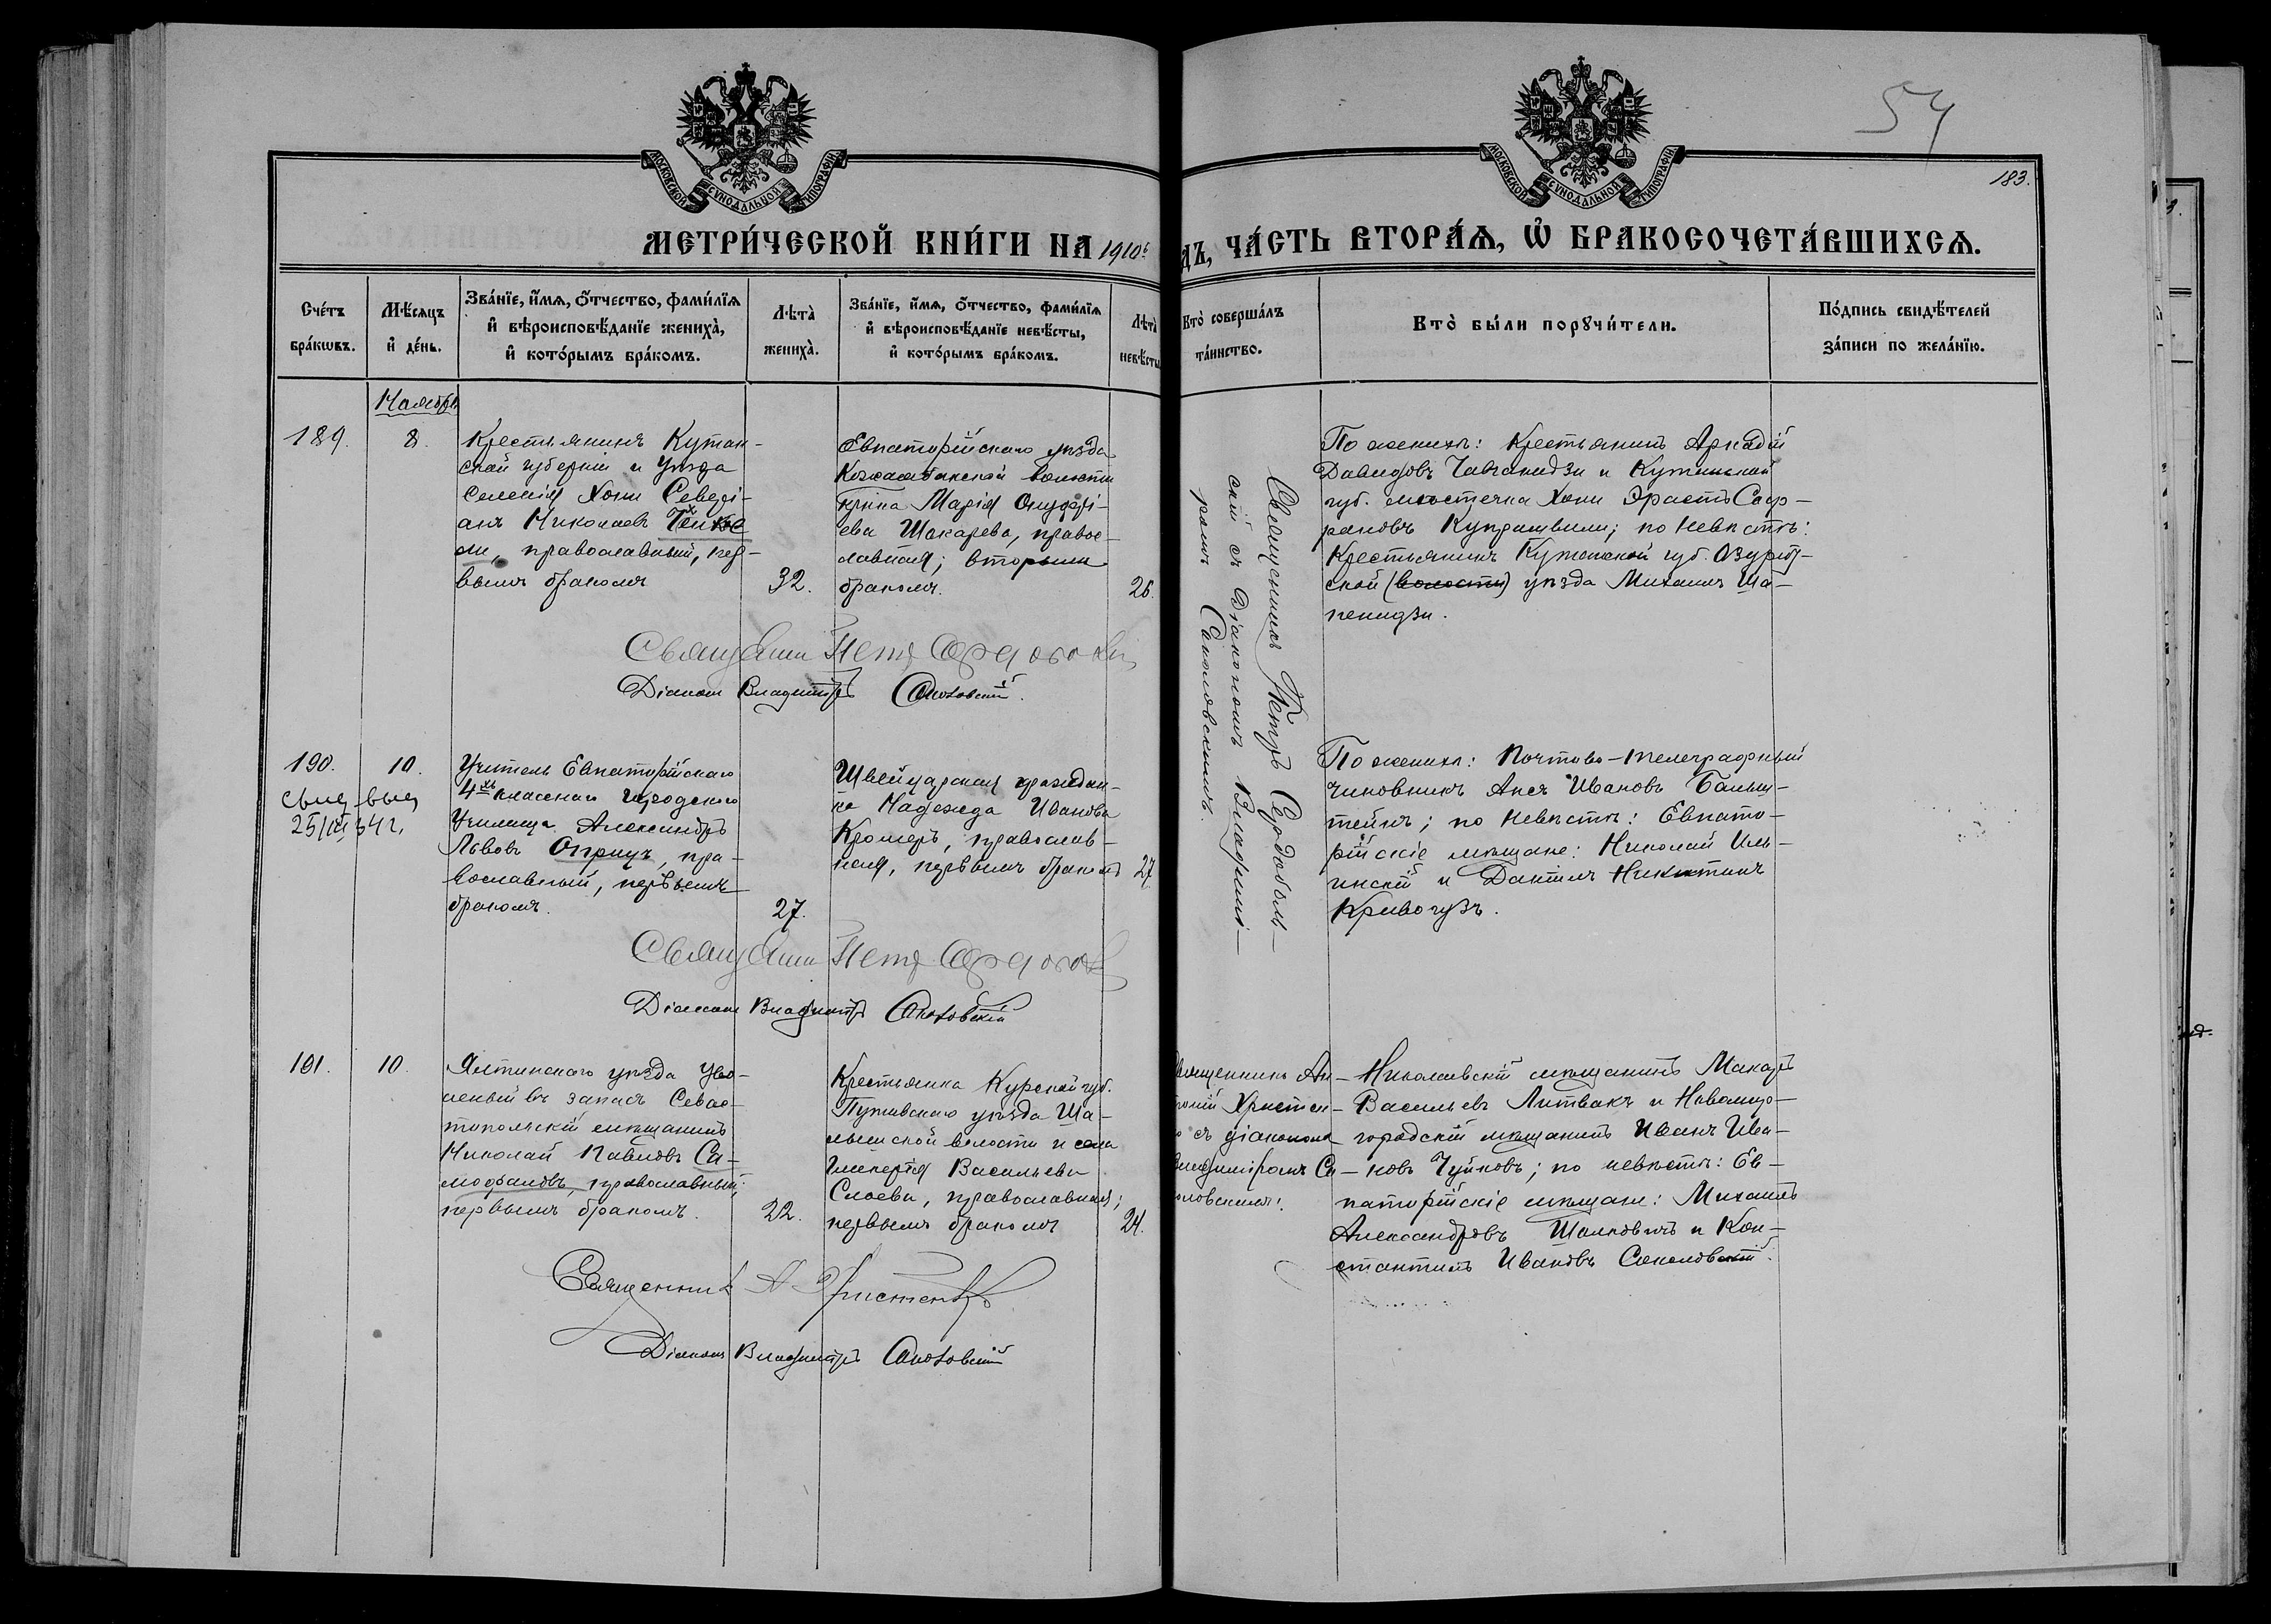 54
183.
МОСКОВСКОЙ СѴНОДАЛЬНОЙ ТИПОГРАФІИ
МОСКОВСКОЙ СѴНОДАЛЬНОЙ ТИПОГРАФІИ
МЕТРИ́ЧЕСКОЙ КНИ́ГИ НА 1910 г
дъ, ЧА́СТЬ ВТОРА́Я, Ѽ БРАКОСОЧЕТА́ВШИХСЯ.
Сче́тъ бра́кѡвъ.
Мѣ́сяцъ и де́нь.
Зва́нїе, и́мя, ѻ҆́тчество, фами́лїя и вѣроисповѣ́данїе жениха̀, и кото́рымъ бра́комъ.
Лѣта̀ жениха̀.
Зва́нїе, и́мя, ѻ҆́тчество, фами́лїя и вѣроисповѣ́данїе невѣ́сты, и кото́рымъ бра́комъ.
Лѣта̀ невѣ́сты
Кто̀ соверша́лъ та́инство.
Кто̀ бы́ли порꙋчи́тели.
По́дпись свидѣ́телей за́писи по жела́нїю.
Ноябрь
189.
8.
Крестьянинъ Кутаи-
ской губерніи и уѣзда
селенія Хони Севері-
анъ Николаевъ
православный, пер-
вымъ бракомъ
32.
Евпаторійскаго уѣзда
волости
Марія Онуфрі-
ева Шокарева, правос-
лавная; вторымъ
бракомъ.
26.
Священникъ Петръ Сердобол-
скій съ Діакономъ Владимі-
ромъ Соколовскимъ.
По женихѣ: Крестьянинъ Аркадій
Давидовъ и Кутаиской
губ. мѣстечка Хони Эрастъ
Купрашвили; по невѣстѣ:
Крестьянинъ Кутаиской губ. Озургет-
ской (волости) уѣзда Михаилъ Ша-
пенидзи.
Діаконъ Владиміръ Соколовскій.
190.
10.
25/III 34 г.
Учитель Евпаторійскаго
4хъ класснаго городского
Училища Александръ
Львовъ Оприцъ, пра-
вославный, первымъ
бракомъ.
27.
Швейцарская граждан-
ка Надежда Иванова
Кромеръ, православ-
ная, первымъ бракомъ
27.
По женихѣ: Почтово-телеграфный
чиновникъ Ивановъ
по невѣстѣ: Евпато-
рійскіе мѣщане: Николай Иль-
инскій и Даніилъ Никитинъ
Кривогузъ.
Діаконъ Владиміръ Соколовскій
191.
10.
Ялтинскаго уѣзда уво-
леный въ запасъ Севас-
топольскій мѣщанинъ
Николай Павловъ Са-
мофаловъ, православный;
первымъ бракомъ.
22.
Крестьянка Курской губ.
Путивскаго уѣзда Ша-
лыгиской волости и села
Гликерія Васильева
Слоева, православная;
первымъ бракомъ
24.
вященникъ Ан-
съ діакономъ
Владиміромъ Со-
оловскимъ.
Николаевскій мѣщанинъ Макаръ
Васильевъ Литвакъ и
городскій мѣщанинъ Иванъ Ива-
новъ Чуйковъ; по невѣстѣ: Ев-
паторійскіе мѣщане: Михаилъ
Александровъ и Кон-
стантинъ Ивановъ Соколовскій.
Священникъ А Христен
Діаконъ Владиміръ Соколовскій